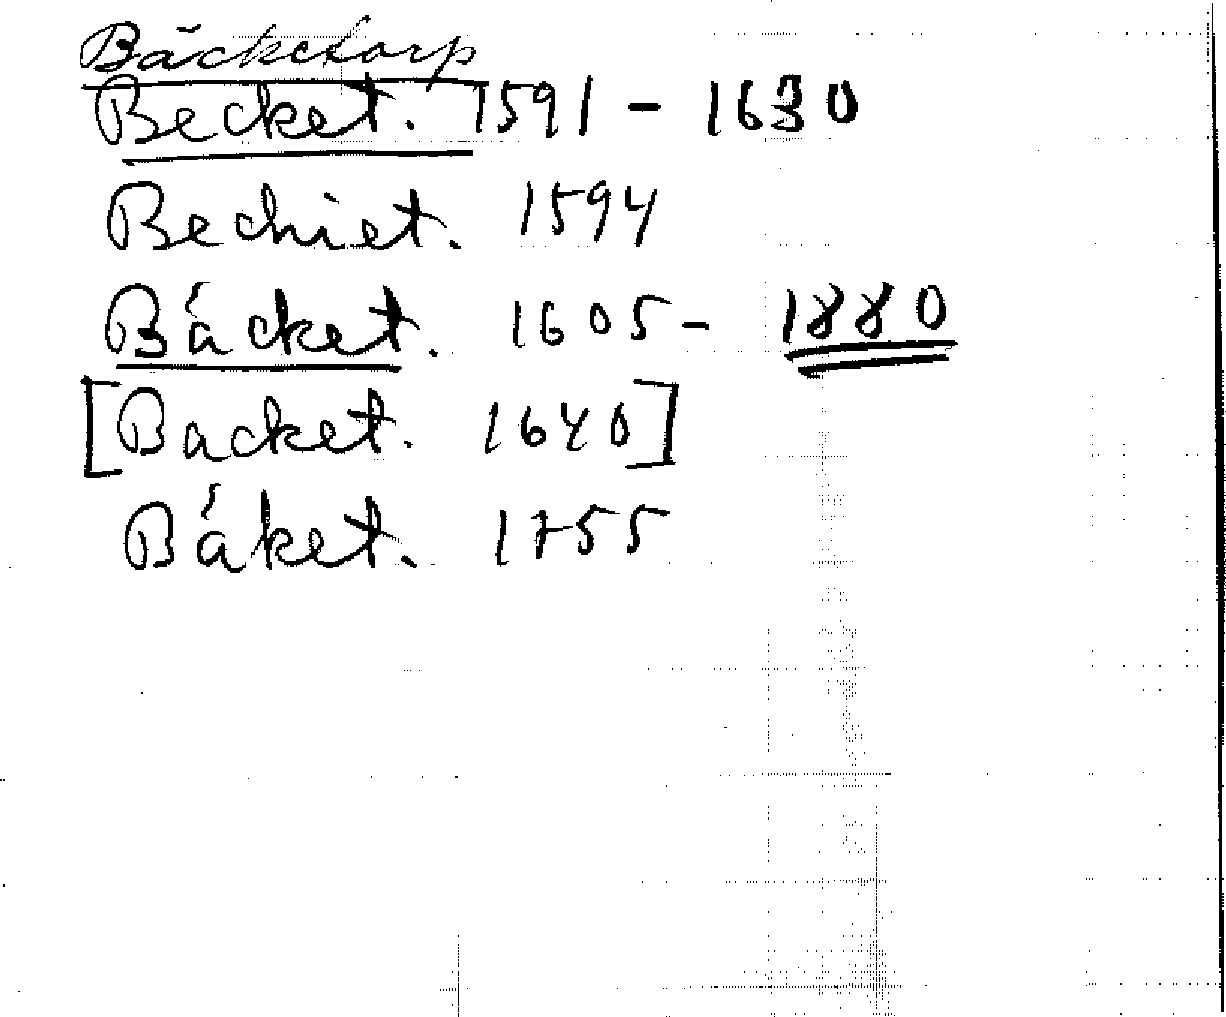 Bäcketorp
Becket. 1591 - 1630
Bechiet. 1594
Bäcket. 1605 - 1880
[Backet. 1640]
Bäket. 1755